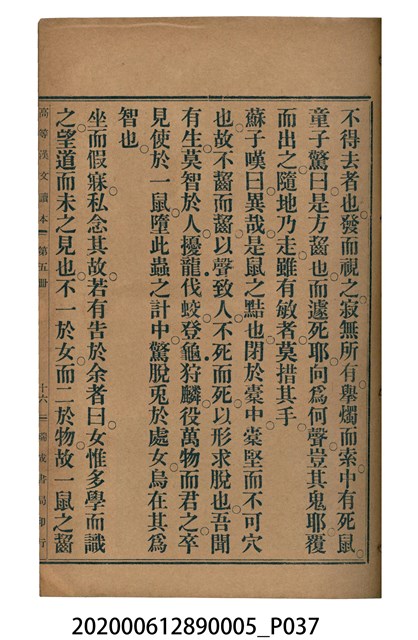 不得去者也發而視之寂無所有舉燭而索中有死鼠
童子驚曰是方齧也而遽死耶向爲何聲豈其鬼耶覆
而出之隨地乃走雖有敏者莫措其手
蘇子嘆曰異哉是鼠之黠也閉於橐中橐堅而不可穴
也故不齧而齧以聲致人不死而死以形求脫也吾聞
有生莫智於人擾龍伐蛟登龜狩麟役萬物而君之卒
見使於一鼠墮此蟲之計中驚脫兎於處女烏在其爲
智也
坐而假寐私念其故若有告於余者曰女惟多學而識
之望道而未之見也不一於女而二於物故一鼠之齧
高等漢文讀本 第五冊 十六 瑞成書局印行
202000612890005_P037